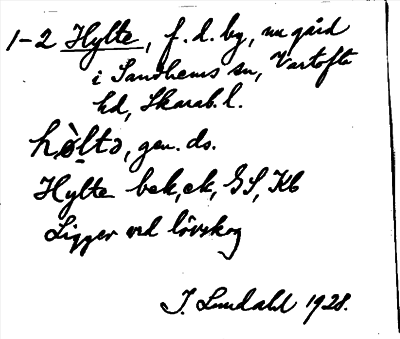 1-2 Hylte, f. d. by, nu gård
i Sandhems sn, Vartofta
hd, Skarab. l.
hø̀ltə, gen. ds.
Hylte bek, ek, GS, Kb
Ligger vid lövskog
I. Lundahl 1928.